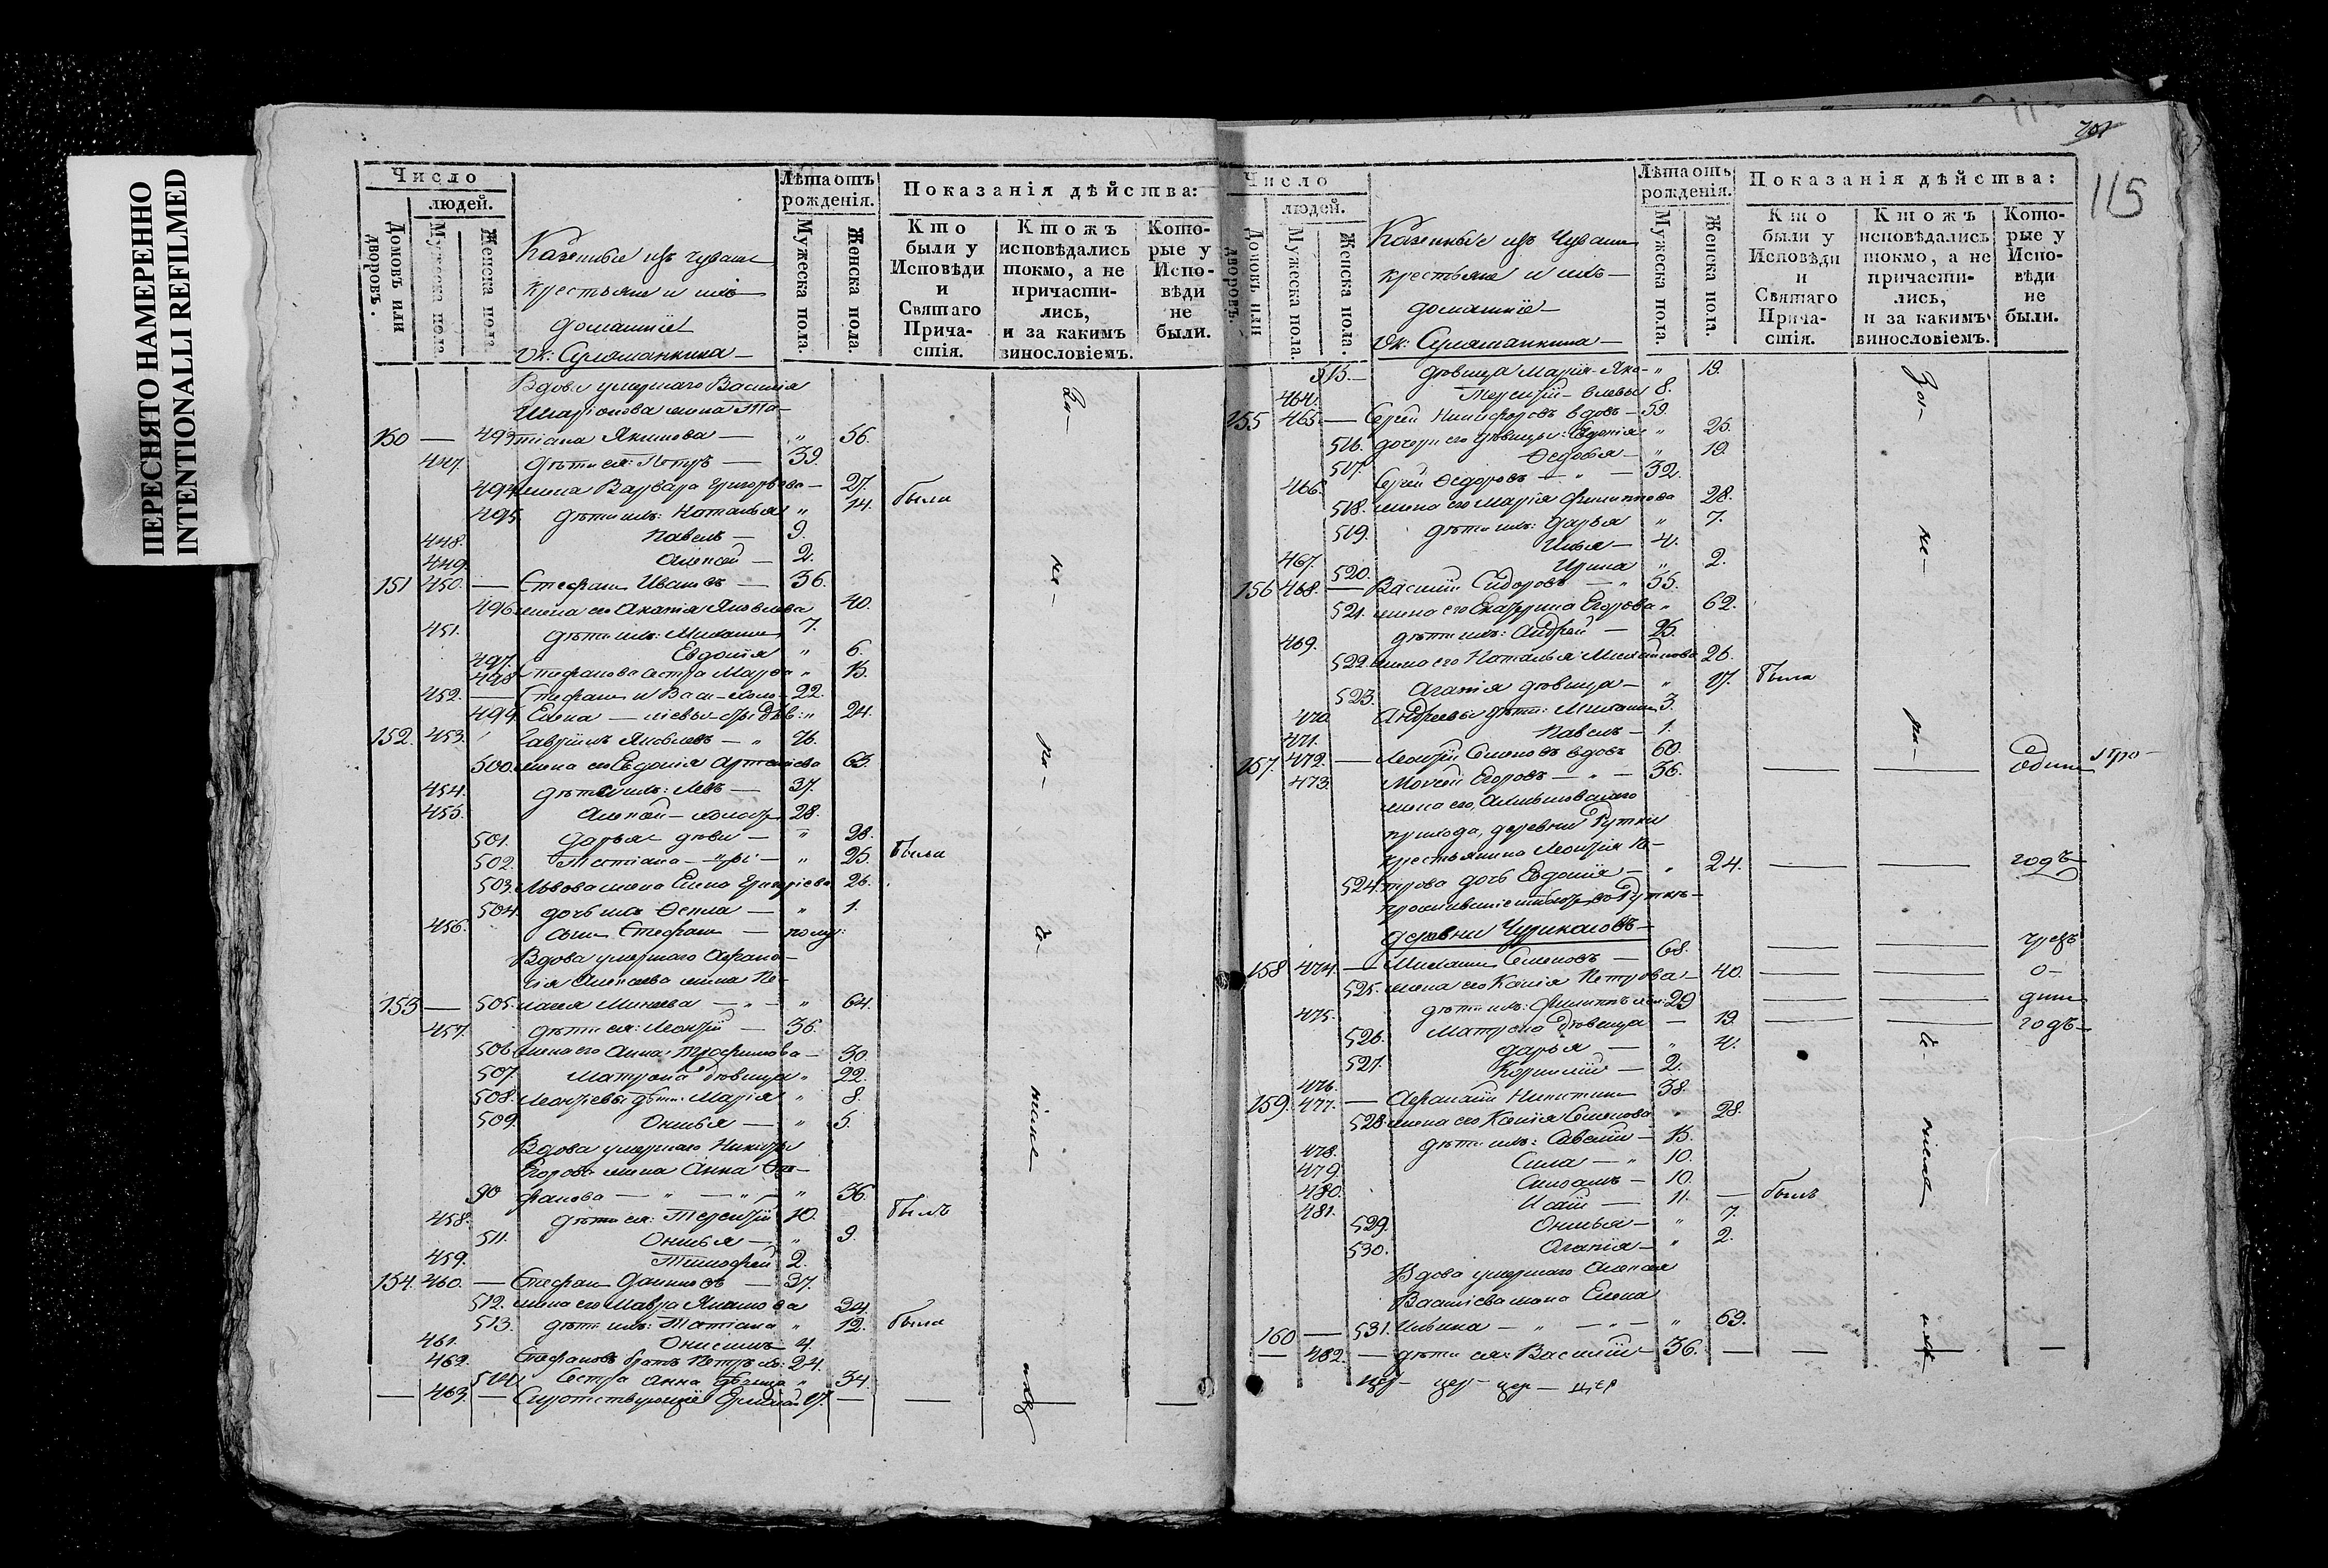 ПЕРЕСНЯТО НАМЕРЕННО
INTENTIONALLI REFILMED
Число
людей.
Домовъ или дворовъ.
Мужеска пола.
Женска пола.
Казенные изъ чувашъ
крестьяне и ихъ
домашніе
Лѣта отъ рожденія.
Мужеска пола.
Женска пола.
Показанія дѣйства:
Кто были у Исповѣди и Святаго Причастія.
Ктожъ исповѣдались токмо, а не причастились, и за какимъ винословіемъ.
Которые у Исповѣди не были.
Вдова умершаго Василія
150 — 493 тіана Якимова — " 56.
447. дѣти ея: Петръ — 39.
494 жена Варвара Григорьева — 27.
495. дѣти ихъ: Наталья " 14. была
448. Павелъ — 9.
449. Алексей — 2.
151 450. — Стефанъ Ивановъ — 36.
496 жена его Акилина Яковлева 40.
451. дѣти ихъ: Михаилъ 7.
497. Евдокія " 6.
498 Стефанова сестра Мавра " 15.
452. — Стефанъ и Васи- 22.
499. Елена — 24.
152. 453. Гавріилъ Яковлевъ — " 76.
500. жена его Евдокія Артемьева 63
454. дѣти ихъ: Левъ — 37.
455. Алексей — холостъ 28.
501. Дарья дѣви — " 28.
502. Татіана — " 25. была
503. Львова жена Елена Григоріева 26.
504. дочь ихъ Ѳекла — " 1.
456. сынъ Стефанъ — полу:
Вдова умершаго Афана-
сія Алексеева жена Пе-
153 — 505. лагея Минеева — " — " 64.
457. дѣти ея: Леонтій — 36.
506. жена его Анна Трофимова — 30.
507. Матрона дѣвица " 22.
508. Леонтьевы дѣти: Марія " 8.
509. Онисья — " 5.
Вдова умершаго Никиты
Егорова жена Анна Сте-
фанова — " — " — " 36.
458. дѣти ея: Терентій 10. былъ
511. Онисья — " 9.
459. Тимофей 2.
154. 460. — Стефанъ Даниловъ — 37.
512. жена его Мавра 34.
513. дѣти ихъ: Татіана " 12. была
461. Онисимъ 4.
462. Стефановъ братъ Петръ хо: 24.
514. Сестра Анна дѣвица " 34
— 463. — Сиротствующіе 17. — — —
115
Число
людей.
Домовъ или дворовъ.
Мужеска пола.
Женска пола.
Казенные изъ Чувашъ
крестьяне и ихъ
домашніе
Лѣта отъ рожденія.
Мужеска пола.
Женска пола.
Показанія дѣйства:
Кто были у Исповѣди и Святаго Причастія.
Ктожъ исповѣдались токмо, а не причастились, и за какимъ винословіемъ.
Которые у Исповѣди не были.
515. — дѣвица Марія Яко- " 19.
464. Терентій — влевы 8.
155 465. — Сергей Никифоровъ вдовъ — 59.
516. дочери его дѣвицы: Евдокія " 25.
517. Ѳедосья — " 19.
466. Сергей Ѳедоровъ — " — 32.
518. жена его Марія Филиппова 28.
519. дѣти ихъ: Дарья " 7.
467. Илья — 4.
520. Ирина " 2.
156 468. — Василій Сидоровъ — " 55.
521. жена его Екатерина Егорова " 62.
469. дѣти ихъ: Андрей — 25.
522. жена его Наталья Михайлова 26.
523. Агапія дѣвица — " 17. была
470. Андреевы дѣти: Михаилъ 3.
471. Павелъ — 1.
157. 472. — Леонтій Семеновъ вдовъ 60.
473. Моисей Егоровъ — " — 36. — — Одинъ
жена его,
прихода, деревни
крестьянина Леонтія Пе-
524. трова дочь Евдокія — " 24. — — годъ
деревни Чурикасовъ —
158 474. — Михаилъ Семеновъ — 68. — — чрезъ
525. жена его Ксенія Петрова — 40. — — о-
475. дѣти ихъ: Филиппъ 29 — — динъ
526. Матрона дѣвица — 19. — — годъ
527. Дарья — " 4.
476. Корнилій — 2.
159. 477. — Афанасій Никитинъ 38.
528. жена его Ксенія Семенова " 28.
478. дѣти ихъ: Савелій — 15.
479. Сила — " 10.
480. 10.
481. Исай — 11. — былъ
529. Онисья — " 7.
530. Агапія — " 2.
Вдова умершаго Алексея
Васильева жена Елена
160 — 531. Ильина — " — " — " 69.
— 482. — дѣти ея: Василій — 36. — — —
цер — цер — цер — цер